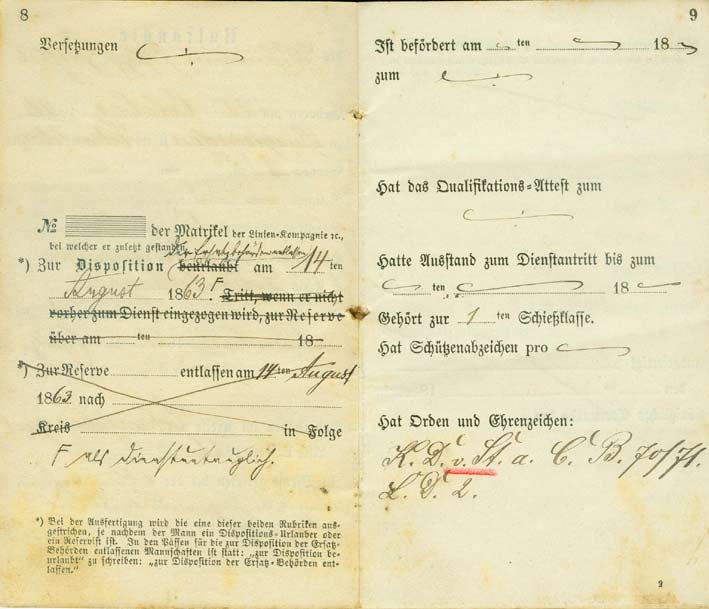 8
Versetzungen
№ der Matrikel der Linien-Kompagnie ꝛc.,
bei welcher er zuletzt gestanden.
der Ersatzbehörden entlassen
*) Zur Disposition beurlaubt am 14 ten
August 1863. F Tritt, wenn er nicht
vorher zum Dienst eingezogen wird, zur Reserve
über am ten 18
*) Zur Reserve entlassen am 14 ten August
1863 nach
Kreis in Folge
F als dienstuntauglich.
*) Bei der Ausfertigung wird die eine dieser beiden Rubriken aus-
gestrichen, je nachdem der Mann ein Dispositions-Urlauber oder
ein Reservist ist. In den Pässen für die zur Disposition der Ersatz-
Behörden entlassenen Mannschaften ist statt: „zur Disposition be-
urlaubt“ zu schreiben: „zur Disposition der Ersatz-Behörden ent-
lassen.“
9
Ist befördert am ten 18
zum
Hat das Qualifikations-Attest zum
Hatte Ausstand zum Dienstantritt bis zum
ten 18
Gehört zur 1 ten Schießklasse.
Hat Schützenabzeichen pro
Hat Orden und Ehrenzeichen:
K. D. v. St. a. C. B. 70/71.
L. D. 2.
2